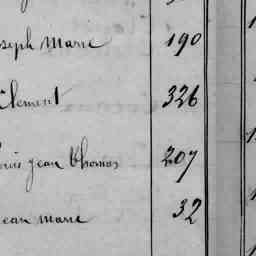 oseph Marie 190
Clement 326
Louis Jean Thomas 207
Jean Marie 32